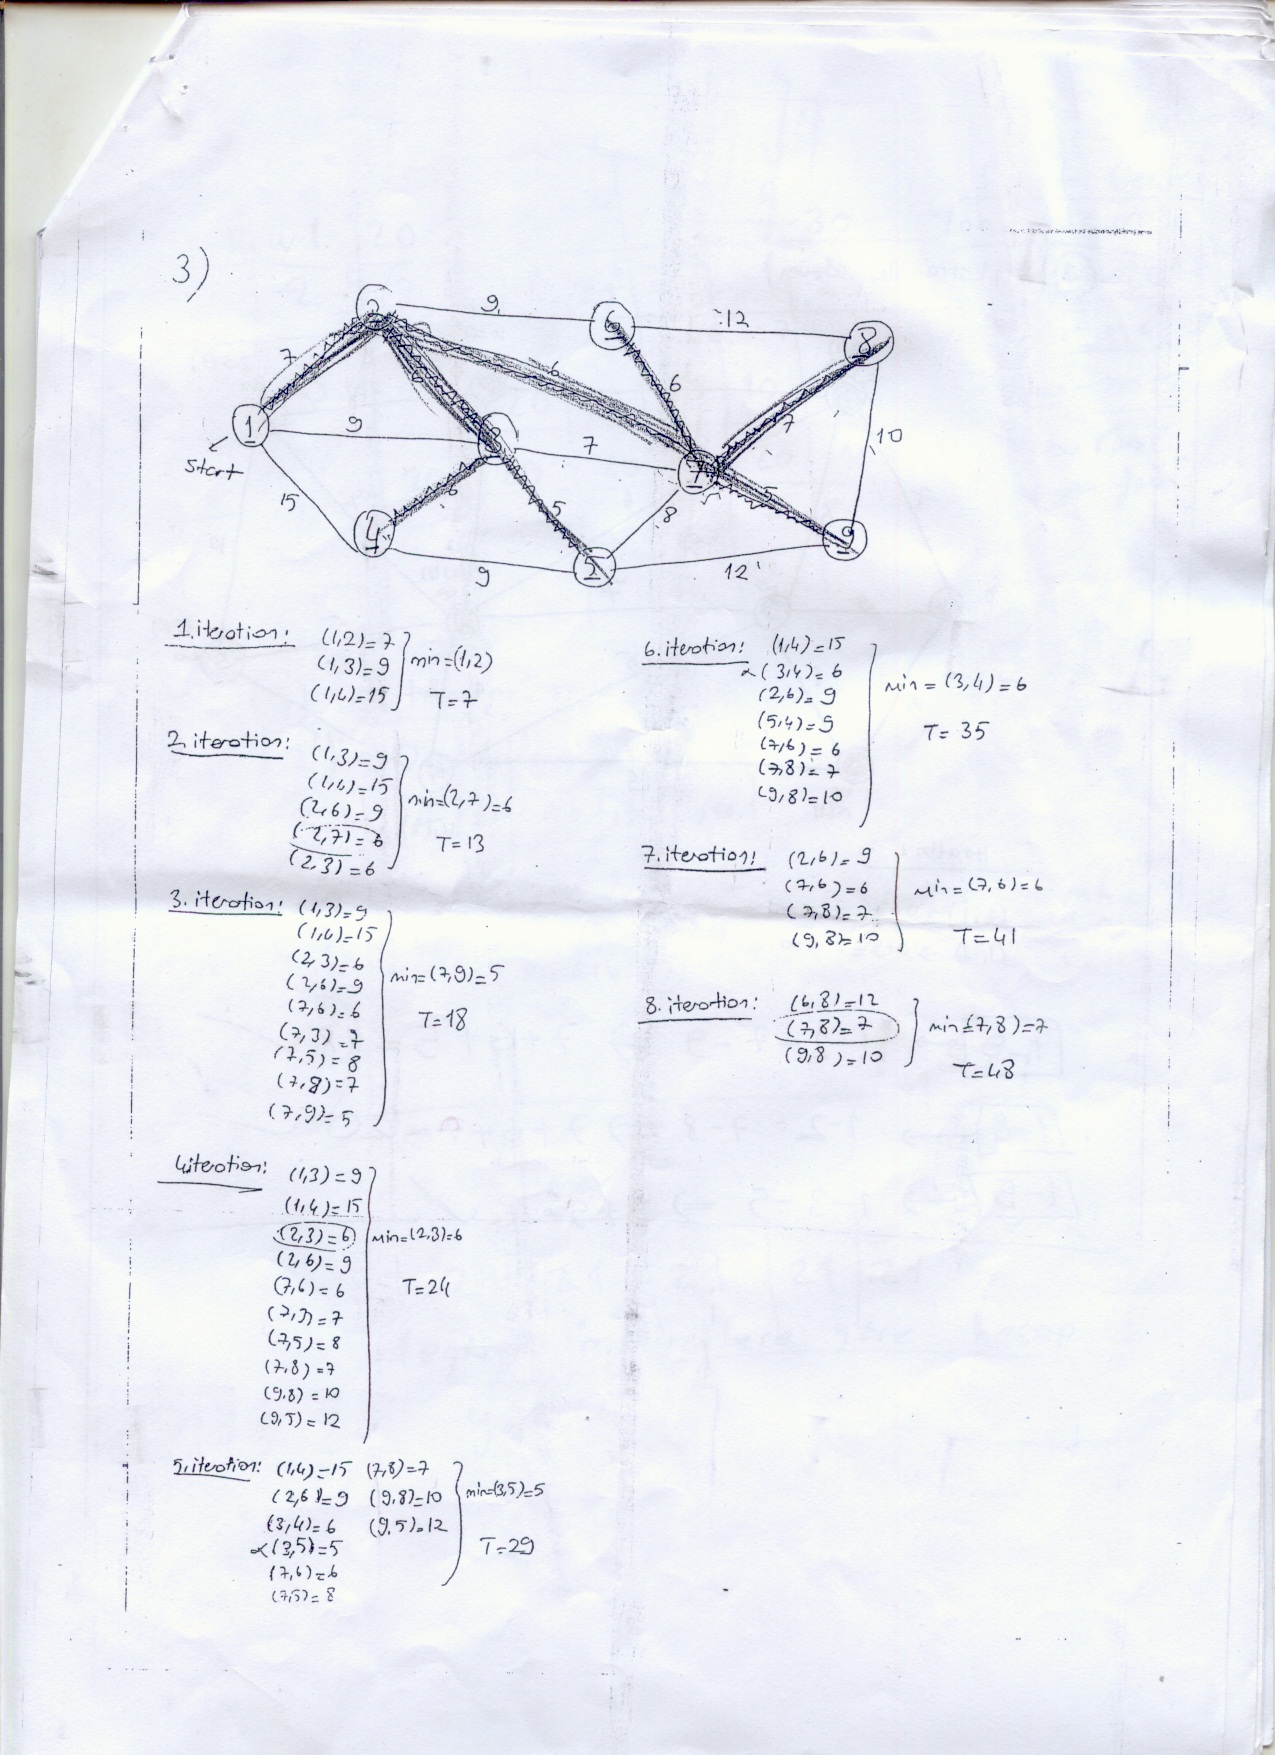 3)
9
12
7
6
6
1
9
7
7
10
Start
15
6
5
8
5
4
9
5
12
6
8
7
9
1.iteration:
(1,2)=7
(1,3)=9
(1,4)=15
min=(1,2)
T=7
2.iteration:
(1,3)=9
(1,4)=15
(2,6)=9
(2,7)=6
(2,3)=6
min=(2,7)=6
T=13
3. iteration:
(1,3)=9
(1,4)=15
(2,3)=6
(2,6)=9
(7,6)=6
(7,3)=7
(7,5)=8
(7,8)=7
(7,9)=5
min=(7,9)=5
T=18
4.iteration:
(1,3)=9
(1,4)=15
(2,3)=6
(2,6)=9
(7,6)=6
(7,3)=7
(7,5)=8
(7,8)=7
(9,8)=10
(9,5)=12
min=(2,3)=6
T=24
5.iteration:
(1,4)=15 (7,8)=7
(2,6)=9 (9,8)=10
(3,4)=6 (9,5)=12
∝(3,5)=5
(7,6)=6
(7,5)=8
min=(3,5)=5
T=29
6. iteration:
(1,4)=15
∝(3,4)=6
(2,6)=9
(5,4)=9
(7,6)=6
(7,8)=7
(9,8)=10
min=(3,4)=6
T=35
7.iteration:
(2,6)=9
(7,6)=6
(7,8)=7
(9,8)=10
min=(7,6)=6
T=41
8.iteration:
(6,8)=12
(7,8)=7
(9,8)=10
min=(7,8)=7
T=48